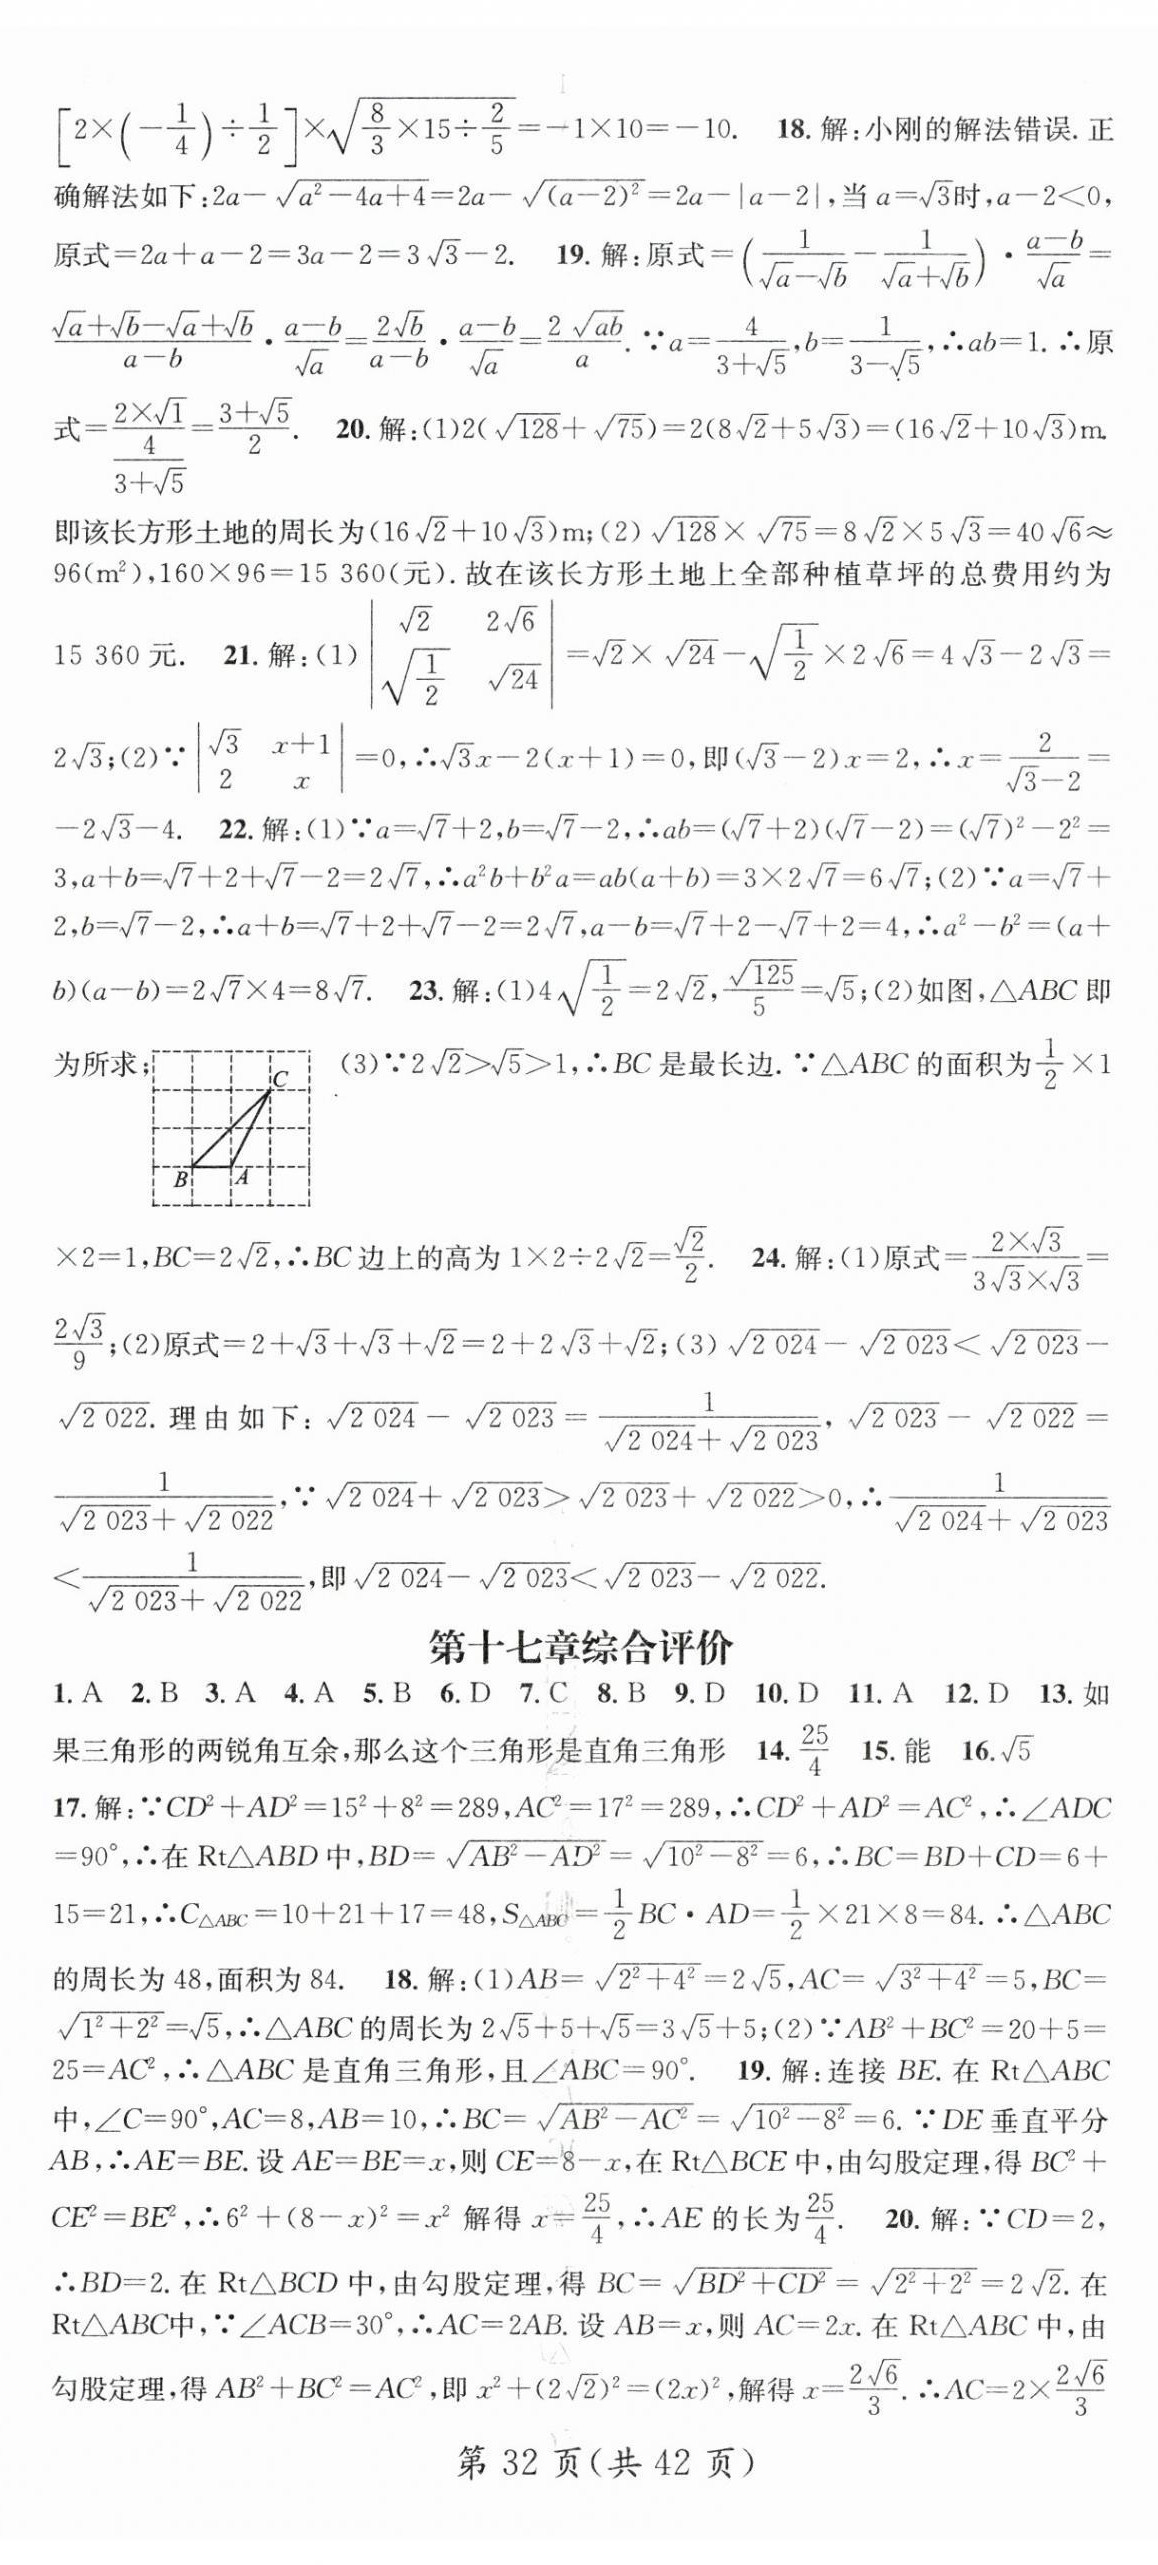 [2×(-1/4)÷1/2]×√(8/3×15÷2/5)=-1×10=-10. 18. 解:小刚的解法错误. 正
确解法如下:2a-√(a²-4a+4)=2a-√((a-2)²)=2a-|a-2|,当 a=√3时,a-2<0,
原式=2a+a-2=3a-2=3√3-2. 19. 解:原式=(1/(√a-√b)-1/(√a+√b))·(a-b)/√a=
(√a+√b-√a+√b)/(a-b)·(a-b)/√a=2√b/(a-b)·(a-b)/√a=2√(ab)/a. ∵a=4/(3+√5),b=1/(3-√5),∴ab=1. ∴原
式=(2×√1)/(4/(3+√5))=(3+√5)/2. 20. 解:(1)2(√128+√75)=2(8√2+5√3)=(16√2+10√3)m.
即该长方形土地的周长为(16√2+10√3)m;(2)√128×√75=8√2×5√3=40√6≈
96(m²),160×96=15 360(元). 故在该长方形土地上全部种植草坪的总费用约为
15 360 元. 21. 解:(1)|√2 2√6; √(1/2) √24|=√2×√24-√(1/2)×2√6=4√3-2√3=
2√3;(2)∵|√3 x+1; 2 x|=0,∴√3x-2(x+1)=0,即(√3-2)x=2,∴x=2/(√3-2)=
-2√3-4. 22. 解:(1)∵a=√7+2,b=√7-2,∴ab=(√7+2)(√7-2)=(√7)²-2²=
3,a+b=√7+2+√7-2=2√7,∴a²b+b²a=ab(a+b)=3×2√7=6√7;(2)∵a=√7+
2,b=√7-2,∴a+b=√7+2+√7-2=2√7,a-b=√7+2-√7+2=4,∴a²-b²=(a+
b)(a-b)=2√7×4=8√7. 23. 解:(1)4√(1/2)=2√2,√125/5=√5;(2)如图,△ABC 即
为所求; (3)∵2√2>√5>1,∴BC 是最长边. ∵△ABC 的面积为1/2×1
C
B A
×2=1,BC=2√2,∴BC 边上的高为 1×2÷2√2=√2/2. 24. 解:(1)原式=(2×√3)/(3√3×√3)=
2√3/9;(2)原式=2+√3+√3+√2=2+2√3+√2;(3)√2 024-√2 023<√2 023-
√2 022. 理由如下:√2 024-√2 023=1/(√2 024+√2 023),√2 023-√2 022=
1/(√2 023+√2 022),∵√2 024+√2 023>√2 023+√2 022>0,∴1/(√2 024+√2 023)
<1/(√2 023+√2 022),即√2 024-√2 023<√2 023-√2 022.
第十七章综合评价
1. A 2. B 3. A 4. A 5. B 6. D 7. C 8. B 9. D 10. D 11. A 12. D 13. 如
果三角形的两锐角互余,那么这个三角形是直角三角形 14. 25/4 15. 能 16. √5
17. 解:∵CD²+AD²=15²+8²=289,AC²=17²=289,∴CD²+AD²=AC²,∴∠ADC
=90°,∴在 Rt△ABD 中,BD=√(AB²-AD²)=√(10²-8²)=6,∴BC=BD+CD=6+
15=21,∴C△ABC=10+21+17=48,S△ABC=1/2BC·AD=1/2×21×8=84. ∴△ABC
的周长为 48,面积为 84. 18. 解:(1)AB=√(2²+4²)=2√5,AC=√(3²+4²)=5,BC=
√(1²+2²)=√5,∴△ABC 的周长为 2√5+5+√5=3√5+5;(2)∵AB²+BC²=20+5=
25=AC²,∴△ABC 是直角三角形,且∠ABC=90°. 19. 解:连接 BE. 在 Rt△ABC
中,∠C=90°,AC=8,AB=10,∴BC=√(AB²-AC²)=√(10²-8²)=6. ∵DE 垂直平分
AB,∴AE=BE. 设 AE=BE=x,则 CE=8-x,在 Rt△BCE 中,由勾股定理,得 BC²+
CE²=BE²,∴6²+(8-x)²=x² 解得 x=25/4,∴AE 的长为25/4. 20. 解:∵CD=2,
∴BD=2. 在 Rt△BCD 中,由勾股定理,得 BC=√(BD²+CD²)=√(2²+2²)=2√2. 在
Rt△ABC中,∵∠ACB=30°,∴AC=2AB. 设 AB=x,则 AC=2x. 在 Rt△ABC 中,由
勾股定理,得 AB²+BC²=AC²,即 x²+(2√2)²=(2x)²,解得 x=2√6/3. ∴AC=2×2√6/3
第 32 页(共 42 页)